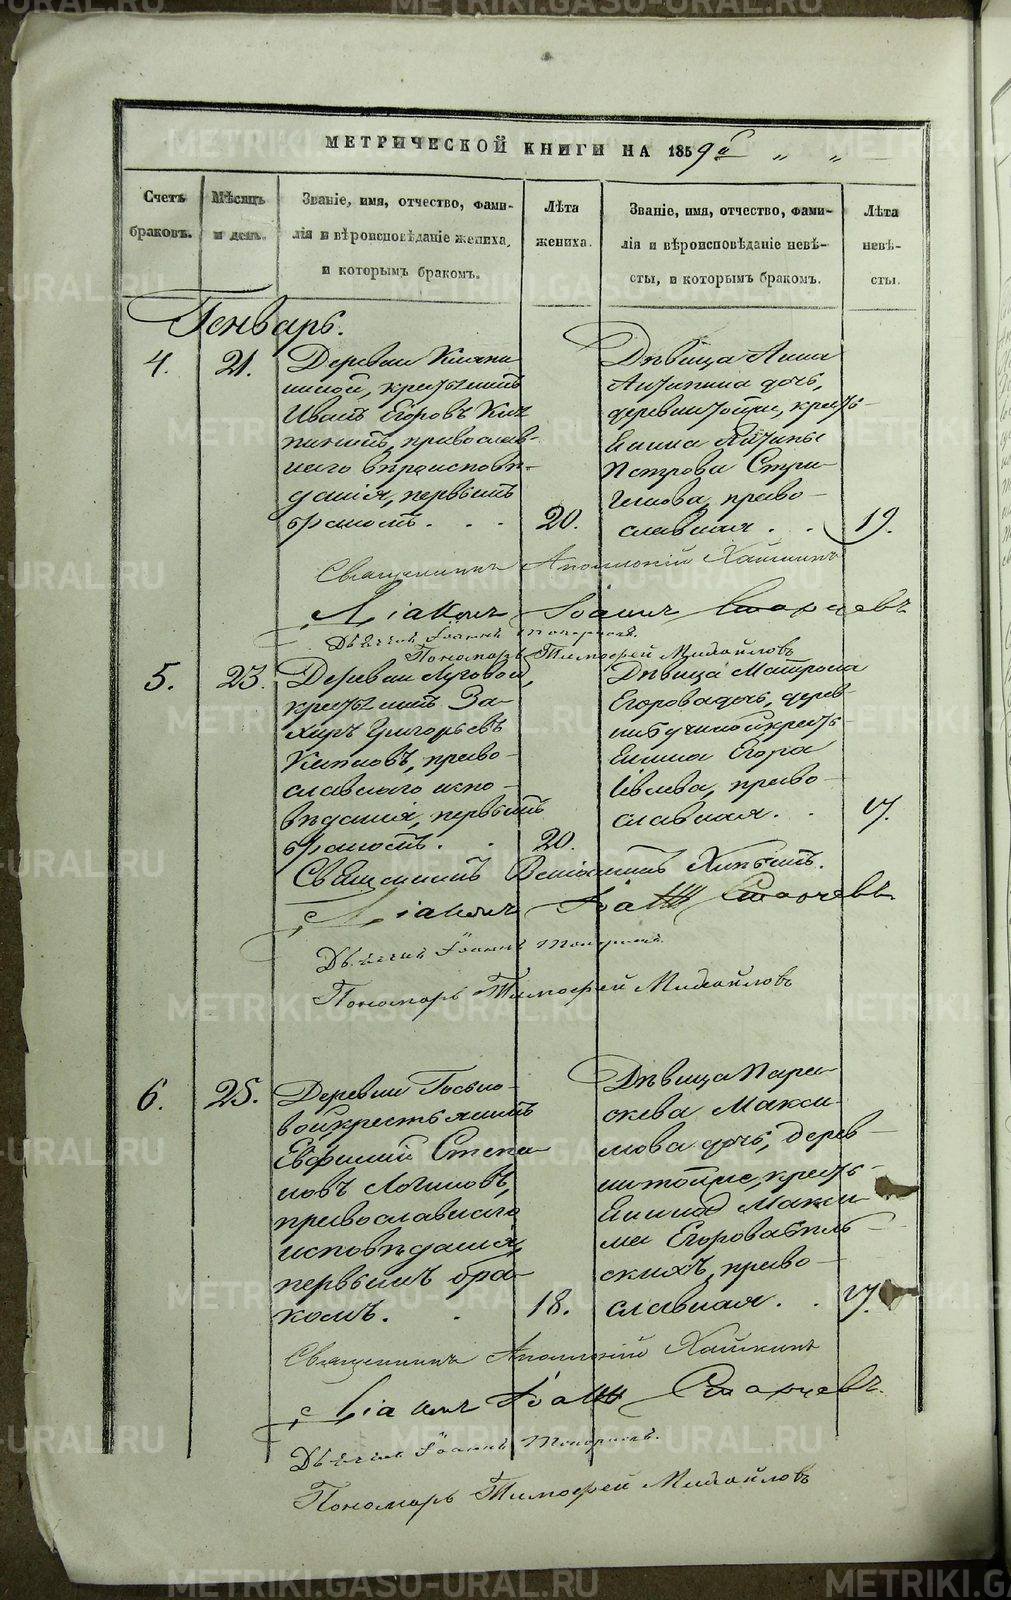 МЕТРИЧЕСКОЙ КНИГИ НА 1859й " "
Счетъ браковъ.
Мѣсяцъ и день.
Званіе, имя, отчество, фами-
лія и вѣроисповѣданіе жениха,
и которымъ бракомъ.
Лѣта жениха.
Званіе, имя, отчество, фами-
лія и вѣроисповѣданіе невѣ-
сты, и которымъ бракомъ.
Лѣта невѣ-
сты.
Генварь.
4.
21.
Деревни
крестьянинъ
Иванъ Егоровъ
православ-
наго вѣроисповѣ-
данія, первымъ
бракомъ.
20.
Дѣвица Анна
Антипина дочь,
деревни тойже, кресть-
янина Антипы
Петрова
право-
славная.
19.
Священникъ Хайкинъ
Діаконъ Іоаннъ Старцевъ
Дьячекъ Іоаннъ Топорковъ.
Пономарь Тимофей Михайловъ
5.
23.
Деревни Луговой,
крестьянинъ За-
харъ Григорьевъ
право-
славнаго испо-
вѣданія, первымъ
бракомъ.
20.
Дѣвица Матрона
Егорова дочь, дерев-
ни кресть-
янина Егора
Іевлева, право-
славная.
17.
Священникъ
Діаконъ Іоаннъ Старцевъ
Дьячекъ Іоаннъ Топорковъ.
Пономарь Тимофей Михайловъ
6.
25.
Деревни
крестьянинъ
Евфимій Степа-
новъ Логиновъ,
православнаго
исповѣданія,
первымъ бра-
комъ.
18.
Дѣвица Пара-
скева Макси-
мова дочь, дерев-
ни тойже, кресть-
янина Макси-
ма Егорова
право-
славная.
17.
Священникъ Хайкинъ
Діаконъ Іоаннъ Старцевъ.
Дьячекъ Іоаннъ Топорковъ.
Пономарь Тимофей Михайловъ
METRIKI.GASO-URAL.RU